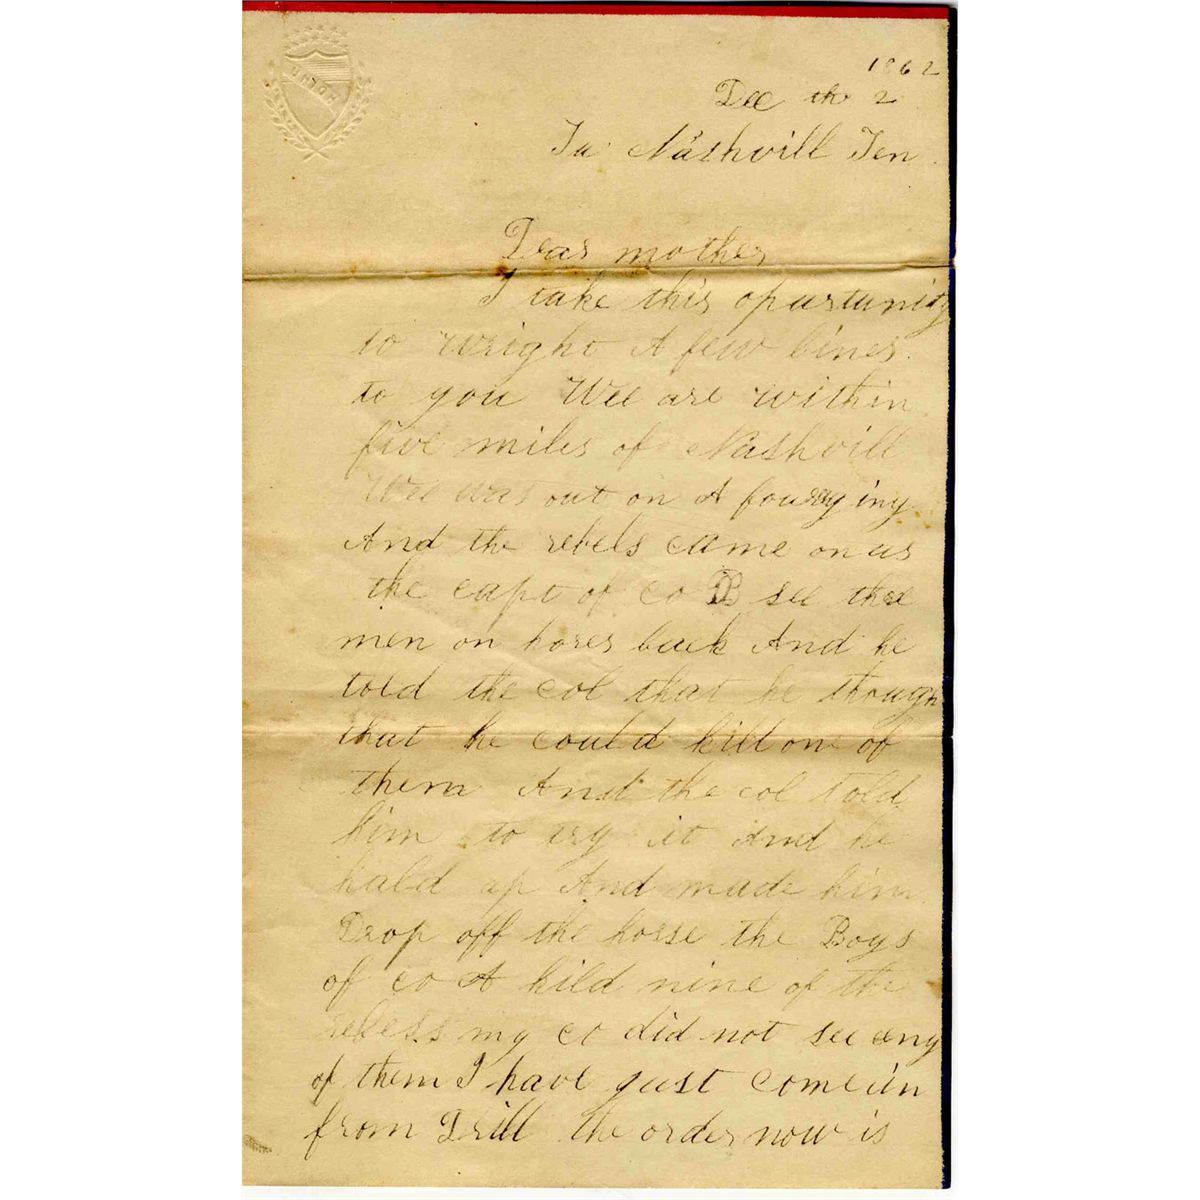 UNION
1862
Dec th 2
In Nashvill Ten
Dear mother
I take this opurtunity
to wright A few lines
to you Wee are within
five miles of Nashvill
Wee was out on A
And the rebels came on us
the capt of co B see the
men on hores back And he
told the col that he though
that he could kill one of
them And the col told
him to try it And he
hald up And made him
Drop off the horse the Boys
of co A kild nine of the
rebess my co did not see eny
of them I have just come in
from Drill the order now is